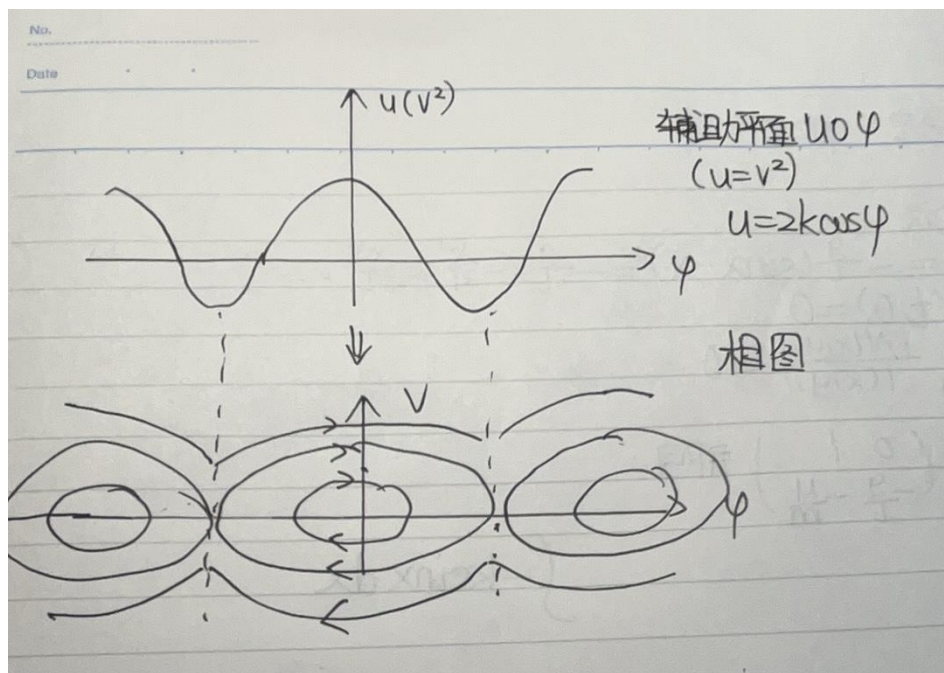 No.
Date
u(v²)
辅助平面uoφ
(u=v²)
u=2kcosφ
φ
相图
V
φ